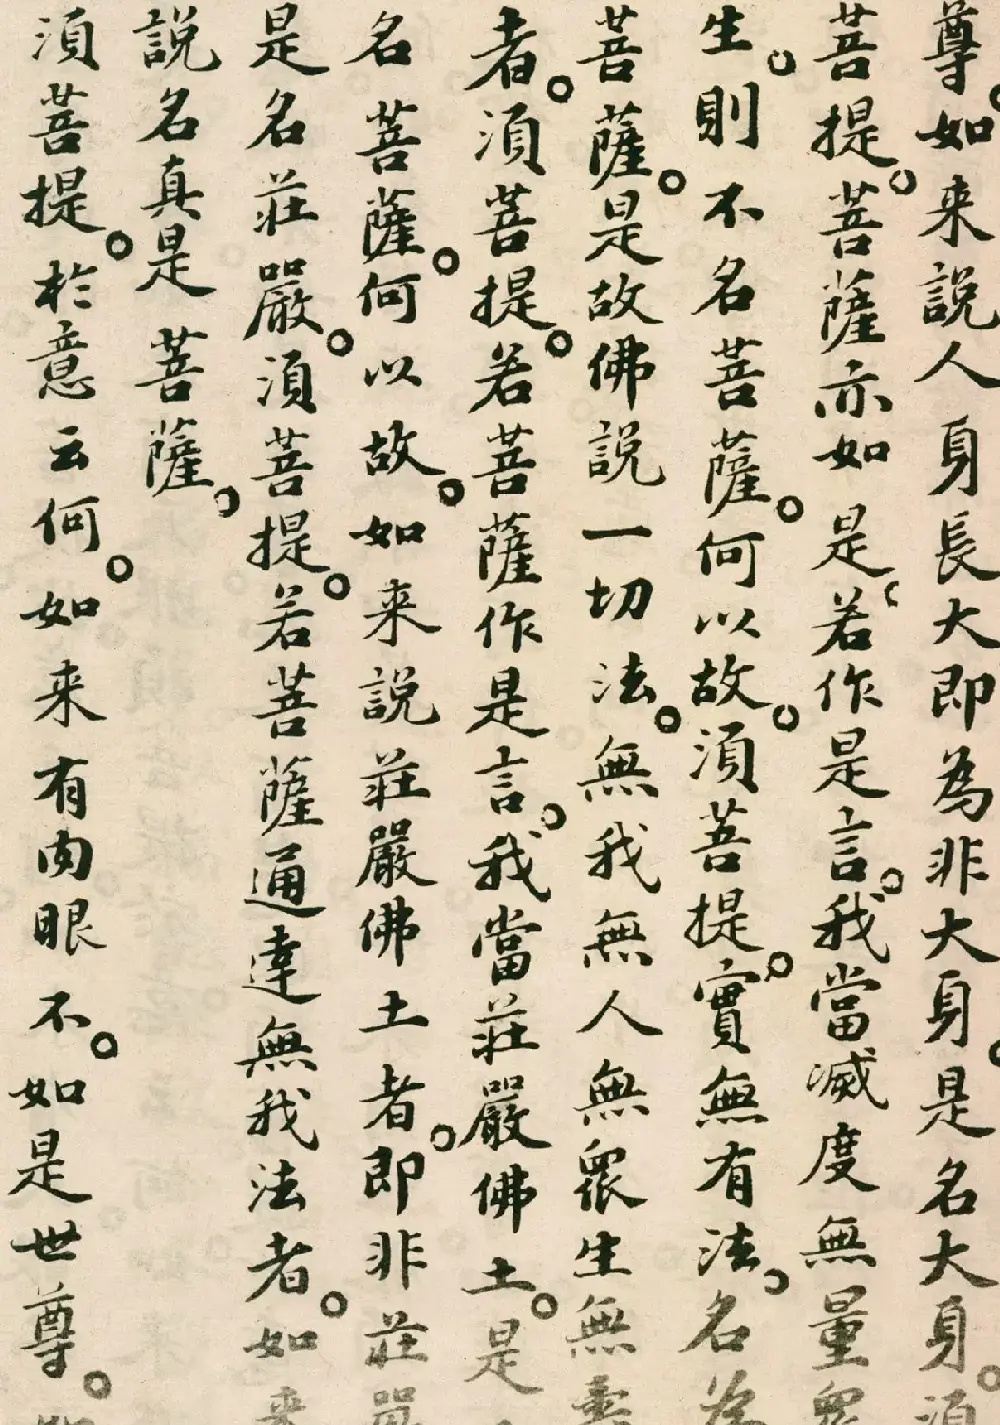 尊。如来説人身長大即為非大身。是名大身。須
菩提。菩薩亦如是。若作是言。我當滅度無量眾
生。則不名菩薩。何以故。須菩提。實無有法。名為
菩薩。是故佛説一切法。無我無人無眾生無壽
者。須菩提。若菩薩作是言。我當莊嚴佛土。是
名菩薩。何以故。如来説莊嚴佛土者。即非莊嚴
是名莊嚴。須菩提。若菩薩通達無我法者。如来
説名真是菩薩。
須菩提。於意云何。如来有肉眼不。如是世尊。